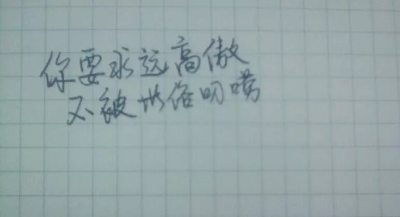 你要永远高傲
不被世俗叨唠